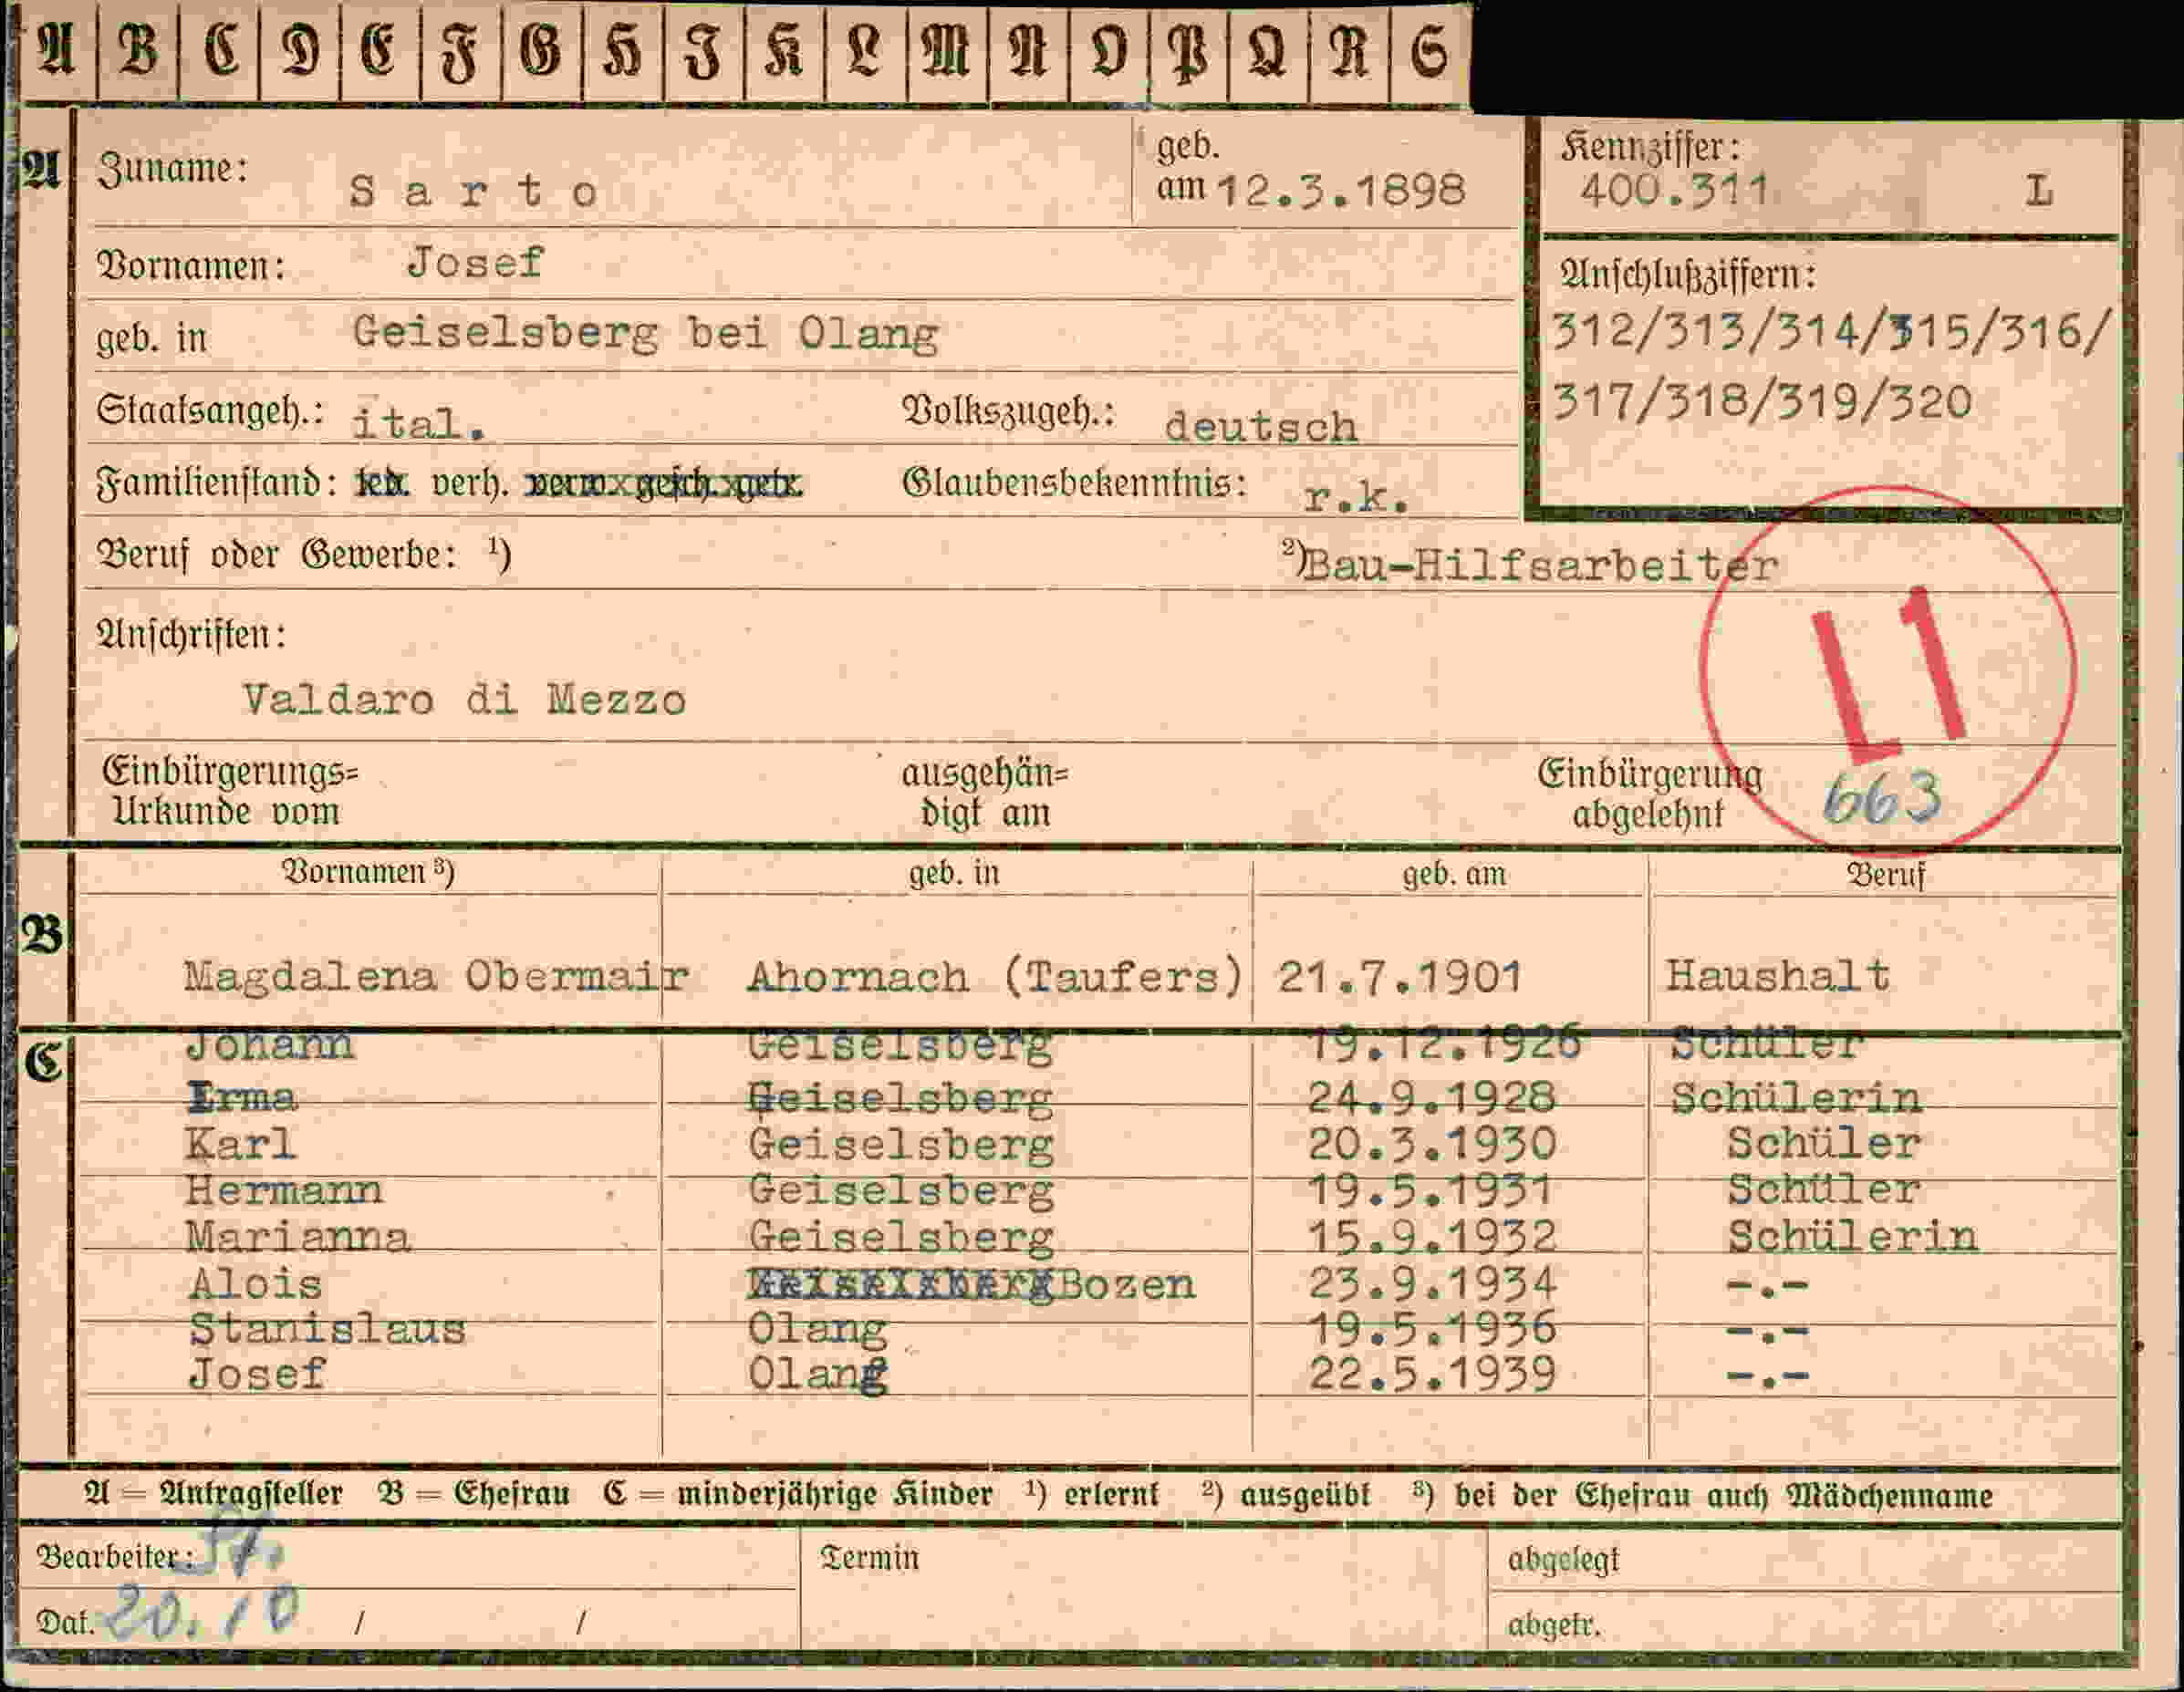 A B C D E F G H I K L M N O P Q R S
A Zuname: Sarto geb. am 12.3.1898 Kennziffer: 400.311 L
Vornamen: Josef
Anschlußziffern:
geb. in Geiselsberg bei Olang 312/313/314/315/316/
Staatsangeh.: ital. Volkszugeh.: deutsch 317/318/319/320
Familienstand: led. verh. verw. gesch. getr. Glaubensbekenntnis: r.k.
Beruf oder Gewerbe: ¹) ²) Bau-Hilfsarbeiter
Anschriften:
L1
Valdaro di Mezzo
Einbürgerungs= ausgehän= Einbürgerung 663
Urkunde vom digt am abgelehnt
Vornamen ³) geb. in geb. am Beruf
B Magdalena Obermair Ahornach (Taufers) 21.7.1901 Haushalt
C Johann Geiselsberg 19.12.1926 Schüler
Erma Geiselsberg 24.9.1928 Schülerin
Karl Geiselsberg 20.3.1930 Schüler
Hermann Geiselsberg 19.5.1931 Schüler
Marianna Geiselsberg 15.9.1932 Schülerin
Alois Bozen 23.9.1934 -.-
Stanislaus Olang 19.5.1936 -.-
Josef Olang 22.5.1939 -.-
A = Antragsteller B = Ehefrau C = minderjährige Kinder ¹) erlernt ²) ausgeübt ³) bei der Ehefrau auch Mädchenname
Bearbeiter: Termin abgelegt
Dat. 20.10 / / abgetr.